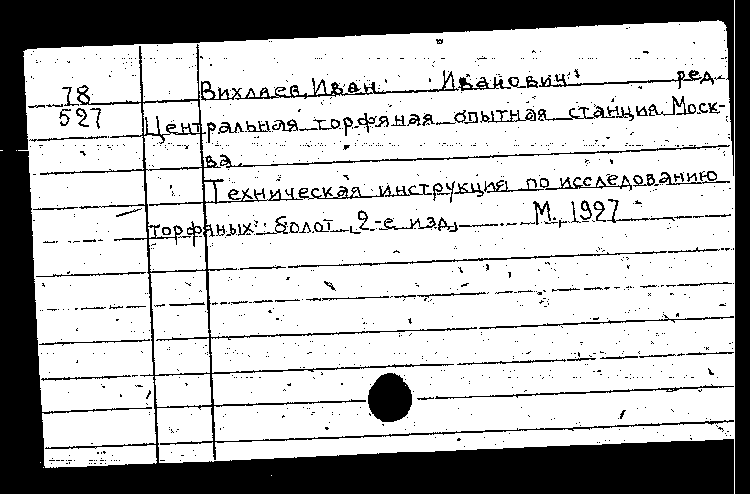 78 Вихляев, Иван Иванович ред.
527 Центральная торфяная опытная станция. Моск-
ва.
Техническая инструкция по исследованию
торфяных болот, 2-е изд. М., 1927